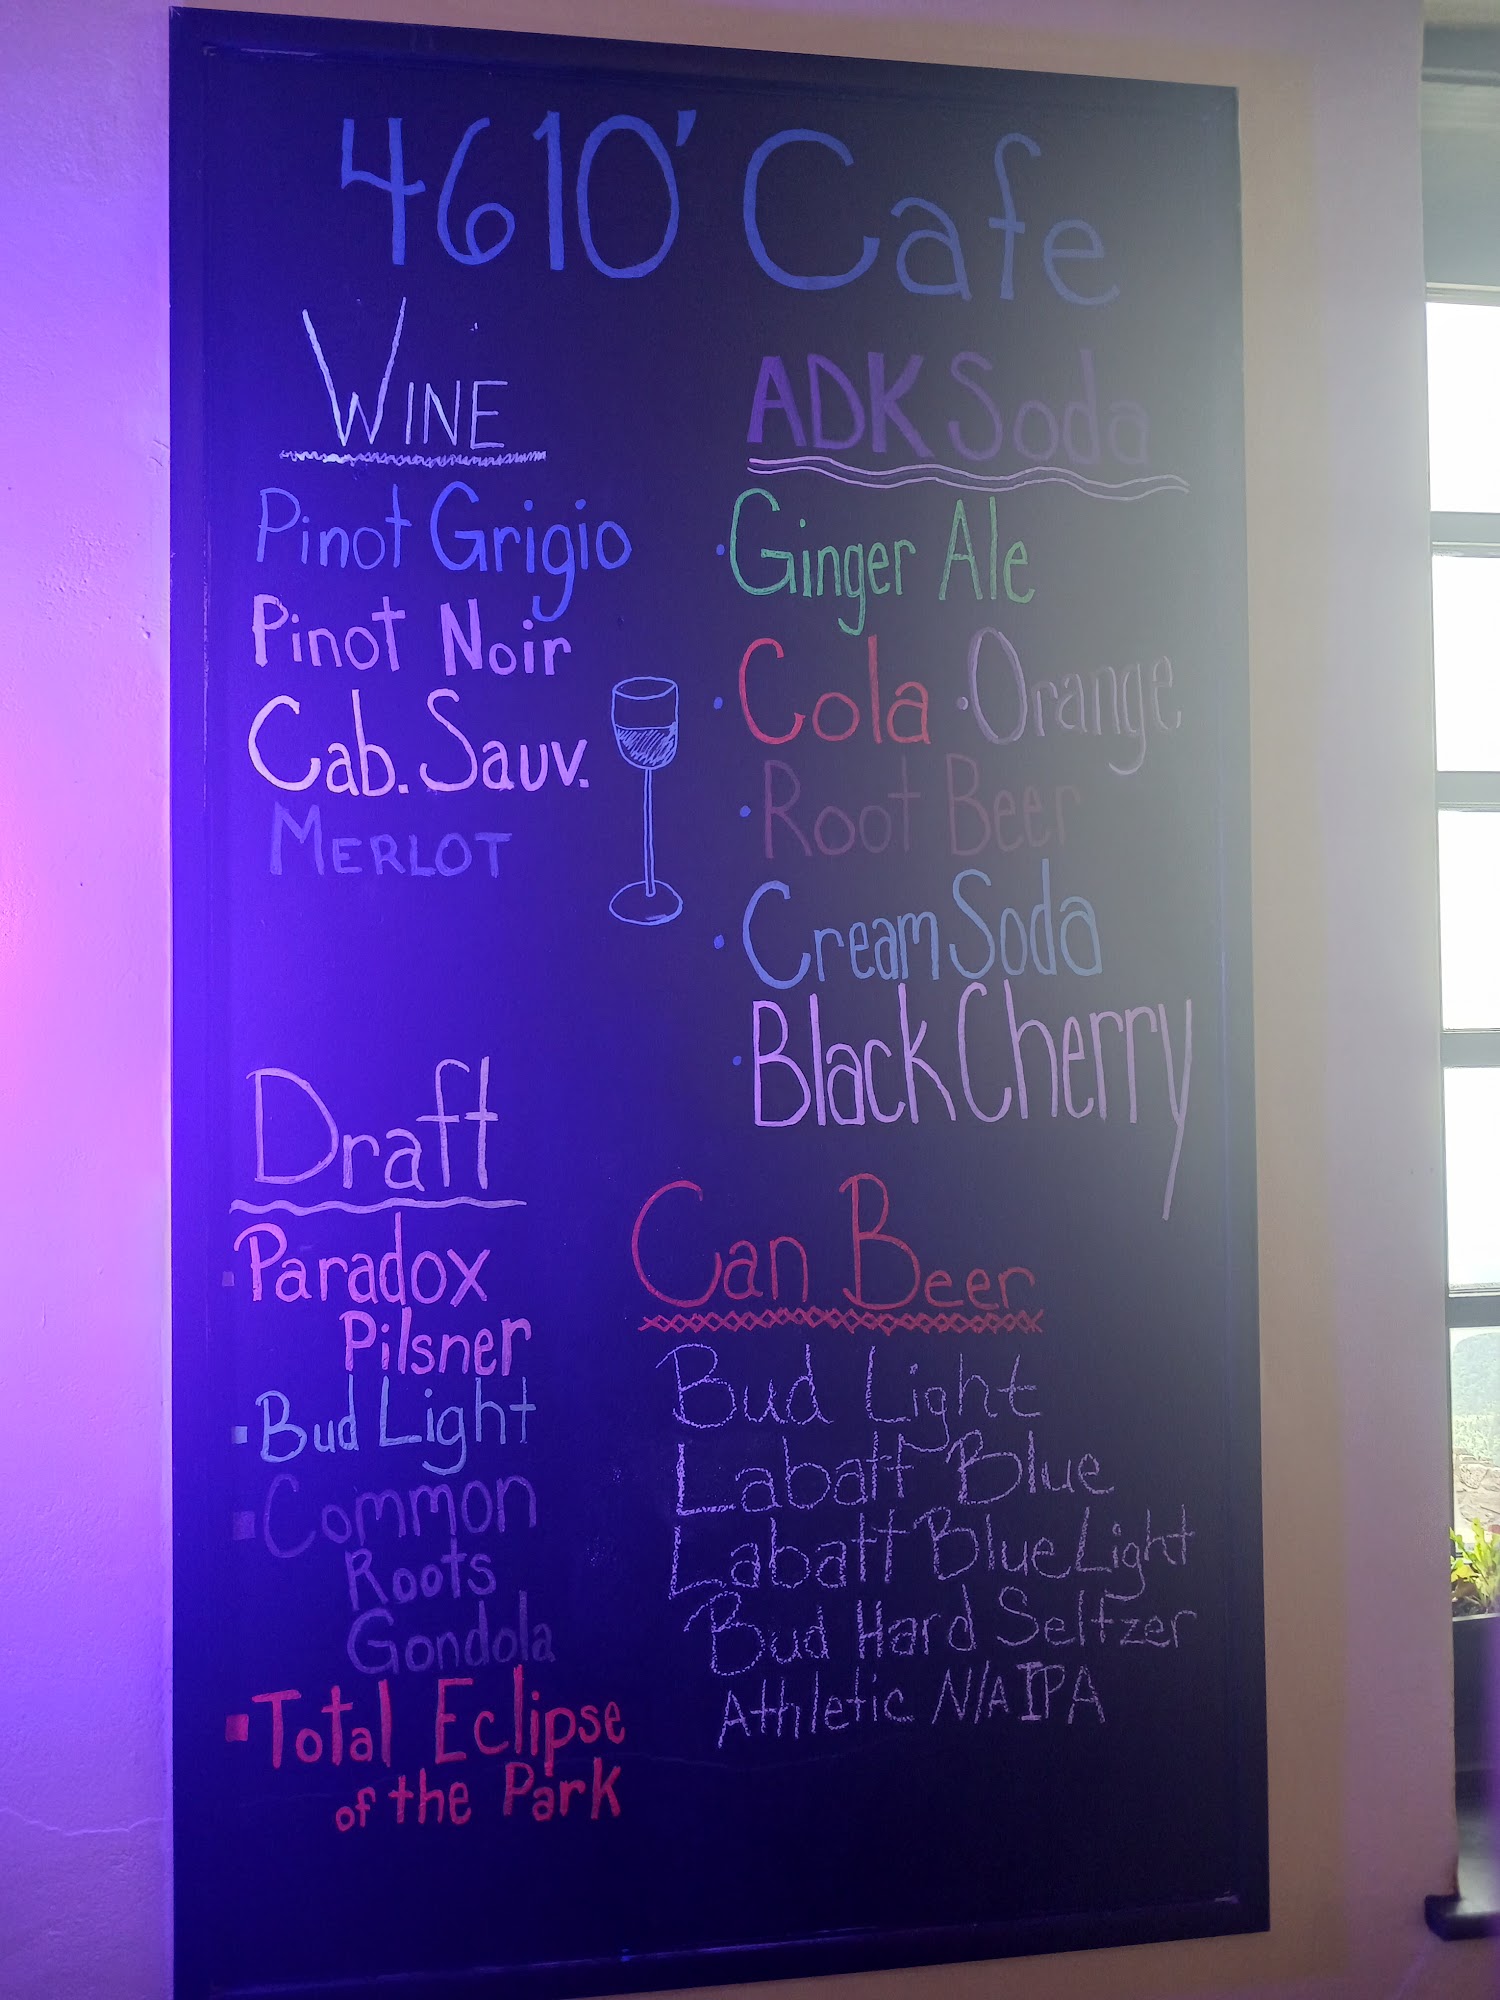 4610' Cafe
WINE
Pinot Grigio
Pinot Noir
Cab. Sauv.
MERLOT
ADK Soda
· Ginger Ale
· Cola · Orange
· Root Beer
· Cream Soda
· Black Cherry
Draft
▪ Paradox
Pilsner
▪ Bud Light
▪ Common
Roots
Gondola
▪ Total Eclipse
of the Park
Can Beer
Bud Light
Labatt Blue
Labatt Blue Light
Bud Hard Seltzer
Athletic N/A IPA